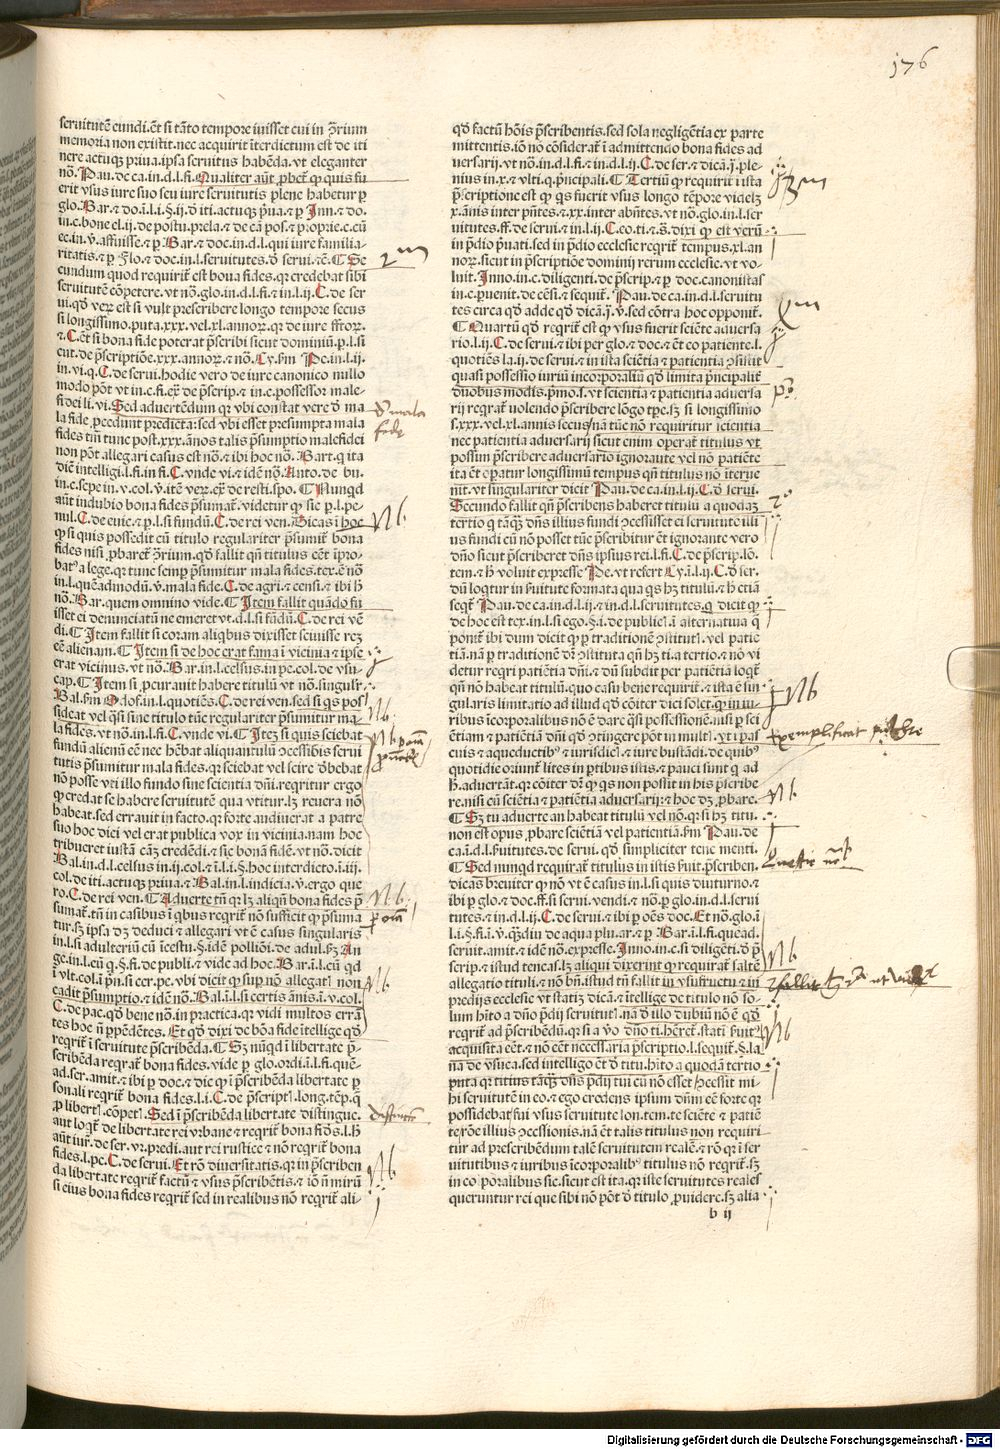 176
seruitutē eundi.ēt si tāto tempore iuisset cui in ꝯ̄rium
memoria non existit.nec acquirit īterdictum est de iti
nere actuqꝫ priua.ipsa seruitus habēda.vt eleganter
nō. Pau.de ca.in.d.l.fi.Qualiter aūt ꝓbet᷑ ꝙ quis fu
erit vsus iure suo seu iure seruitutis plene habetur ꝑ
glo. Bar.⁊ do.ī.l.i.§.ij.đ iti.actuqꝫ p̄ua.⁊ ꝑ Inn.⁊ do.
in.c.bone el.ij.de postu.prela.⁊ de cā pos.⁊ ꝓprie.c.cū
ec.in.v̄.affuisse.⁊ ꝑ Bar.⁊ doc.in.d.l.qui iure familia-
ritatis.⁊ ꝑ Flo.⁊ doc.in.l.seruitutes.đ serui.⁊c̄. ¶ Se
cundum quod requirit᷑ est bona fides.qꝛ credebat sibi
seruitutē cōpetere.vt nō.glo.in.d.l.fi.⁊ in.l.ij.C.de ser
ui.qđ veꝝ est si vult prescribere longo tempore secus
si longissimo.puta.xxx.vel.xl.annoꝝ.
⁊.C.ēt si bona fide poterat p̄scribi sicut dominiū.p.l.si
cut.de p̄scriptiōe.xxx.annoꝝ.⁊ nō. Cy.s̄m Pe.in.l.ij.
in.vi.q.C.de serui.hodie vero de iure canonico nullo
modo pōt vt in.c.fi.ex̄ de p̄scrip.⁊ in.c.possessor male-
fi dei li.vi.Sed aduertēdum ꝙ vbi constat vere đ ma
la fide ꝓcedunt predicta:sed vbi esset presumpta mala
fides tn̄m tunc post.xxx.ānos talis p̄sumptio malefidei
non pōt allegari casus est nō.⁊ ibi hoc nō. Bart.q̨ ita
diē intelligi.l.fi.in fi.C.vnde vi.⁊ idē nō. Anto.de bu.
in.c.sepe in.v.col.v̄.itē veꝝ.ex̄ de resti.spo. ¶ Nunqd
aūt indubio bona fides p̄sumat᷑.videtur ꝙ sic p.l.pe-
nul.C.de euic.⁊ p.l.si fundū.C.de rei ven.Dicas ī hoc
ꝙ si quis possedit cū titulo regulariter p̄sumit᷑ bona
fides nisi ꝓbaret᷑ ꝯ̄rium.qđ fallit qn̄ titulus eēt īpro-
batꝰ a lege.qꝛ tunc semꝑ p̄sumitur mala fides.tex.ē nō
in.l.quēadmodū.v̄.mala fide.C.de agri.⁊ censi.⁊ ibi h̄
nō. Bar.quem omnino vide. ¶ Item fallit quādo fu
isset ei denunciatū ne emeret vt.d.l.si fūdū.C.de rei vē
di. ¶ Item fallit si coram aliqbus dixisset sciuisse reꝫ
eē alienam. ¶ Item si de hoc erat fama ī vicinia ⁊ ipse
erat vicinus.vt nō. Bar.in.l.celsus.in pe.col.de vsu-
cap. ¶ Item si ꝓcurauit habere titulū vt nō.singulr̄
Bal.s̄m Odof.in.l.quotiēs.C.de rei ven.sed si qs pos
sideat vel qsi sine titulo tūc regulariter p̄sumitur ma-
la fides.vt nō.in.l.fi.C.vnde vi. ¶ Iteꝫ si quis sciebat
fundū alienū eē nec hēbat aliquantulū ꝯcessibis serui
tutis p̄sumitur mala fides.qꝛ sciebat vel scire đbebat
nō posse vti illo fundo sine scientia dn̄i.reqritur ergo
ꝙ credat se habere seruitutē qua vtitur.lꝫ reuera nō
habeat.sed errauit in facto.qꝛ forte audiuerat a patre
suo hoc dici vel erat publica vox in vicinia.nam hoc
tribueret iustā cāꝫ credēdi.⁊ sic bonā fidē.vt nō.dicit
Bal.in.d.l.celsus in.ij.col.⁊ ī.l.i.§.hoc interdicto.ī.iij.
col.de iti.actuqꝫ priua.⁊ Bal.in.l.indicia.v̄.ergo que
ro.C.de rei ven. ¶ Aduerte tn̄ qꝛ lꝫ aliqn̄ bona fides p̄
sumat᷑.tn̄ in casibus ī qbus reqrit᷑ nō sufficit ꝙ p̄suma
tur.sꝫ ipsa dꝫ deduci ⁊ allegari vt ē casus singularis
in.l.si adulteriū cū īcestu.§.idē polliōi.de adul.sꝫ An
ge.in.l.cū q̨.§.fi.de publi.⁊ vide ad hoc. Bar.ī.l.cū qd
ī vlt.col.ī prin.si cer.pe.vbi dicit ꝙ sup nō allegatꝭ non
cadit p̄sumptio.⁊ idē nō. Bal.ī.l.si certis ānis.ī.v.col.
C.de pac.qđ bene nō.in practica.qꝛ vidi multos errā
tes hoc n̄ ppēdētes. Et qđ dixi de bōa fide ītellige qđ
reqrit᷑ ī seruitute p̄scribēda. ¶ Sꝫ nūqd ī libertate p̄-
scribēda reqrat᷑ bona fides.vide ꝑ glo.ordi.ī.l.fi.quē-
ad.ser.amit.⁊ ibi ꝑ doc.⁊ dic ꝙ ī p̄scribēda libertate ꝑ
sonali reqrit᷑ bona fides.l.i.C.de p̄script.long.tēp.q̨
ꝓ libert.cōpet. Sed ī p̄scribēda libertate distingue.
aut loqt᷑ de libertate rei vrbane ⁊ reqrit᷑ bona fiđs.l.h̄
aūt iur.de ser.vr.predi.aut rei rustice ⁊ nō reqrit᷑ bona
fides.l.pe.C.de serui. Et rō diuersitatis.qꝛ in p̄scriben
da libertate reqrit᷑ factū ⁊ vsus p̄scribentis.⁊ iō n̄ mirū
si eius bona fides reqrit᷑ sed in realibus nō reqrit᷑ ali-
2m
mala
fide
Nb
Nb
Nb
Nb
Nb
Nb
qđ factū hōis p̄scribentis.sed sola negligētia ex parte
mittentis.iō nō cōsiderat᷑ ī admittendo bona fides ad
uersarij.vt nō.in.d.l.fi.⁊ in.d.l.ij.C.de ser.⁊ dicā.j.ple-
nius in.x.⁊ vlti.q.p̄ncipali. ¶ Tertiū ꝙ requirit᷑ ī ista
p̄scriptione est ꝙ qs fuerit vsus longo tēpore videlꝫ
x.ānis inter p̄ntes.⁊.xx.inter abn̄tes.vt nō.glo.in.l.ser
uitutes.ff.de serui.⁊ in.l.ij.C.eo.ti.⁊.s̄.dixi ꝙ est verū
in p̄dio p̄uati.sed in p̄dio ecclesie reqrit᷑ tempus.xl.an
noꝝ.sicut in p̄scriptiōe dominij rerum ecclesie.vt vo-
luit. Inno.in.c.diligenti.de p̄scrip.⁊ ꝑ doc.canonistas
in.c.ꝑuenit.de cēsi.⁊ sequit᷑. Pau.de ca.in.d.l.seruitu
tes circa qđ adde qđ dicā.j.v̄.sed cōtra hoc opponit᷑.
¶ Quartū qđ reqrit᷑ est ꝙ vsus fuerit sciēte aduersa
rio.l.ij.C.de serui.⁊ ibi per glo.⁊ doc.⁊ ēt eo patiente.l.
quotiēs la.ij.de serui.⁊ in ista sciētia ⁊ patientia ꝯsistit
quasi possessio iuriū incorporaliū qđ limita p̄ncipalit᷑
duobus modis.p̄mo.s.vt scientia ⁊ patientia aduersa
rij reqrat᷑ uolendo p̄scribere lōgo tꝑe.sꝫ si longissimo
s.xxx.vel.xl.annis secus.nā tūc nō requiritur scientia
nec patientia aduersarij sicut enim operat᷑ titulus vt
possim p̄scribere aduersario ignorāte vel nō patiēte
ita ēt oꝑatur longissimū tempus qn̄ titulus nō iterue
nit.vt singulariter dicit Pau.de ca.in.l.ij.C.đ serui.
Secundo fallit qn̄ p̄scribens haberet titulū a quodaꝫ
tertio q̨ tāqꝫ dn̄s illius fundi ꝯcessisset ei seruitutē illi
us fundi cū nō posset tūc p̄scribitur ēt ignorante vero
dn̄o sicut p̄scriberet dn̄s ipsius rei.l.fi.C.de p̄scrip.lō.
tem.⁊ h̄ voluit expresse Pe.vt refert Cy.ī.l.ij.C.đ ser.
dū loqtur in s̄uitute formata qua qs hꝫ titulū.⁊ h̄ etiā
seqt᷑ Pau.de ca.in.d.l.ij.⁊ in.d.l.seruitutes.q̨ dicit ꝙ
de hoc est tex.in.l.si ego.§.i.de publici.ī alternatiua q̄
ponit᷑ ibi dum dicit ꝙ p traditionē ꝯstitutꝭ.vel patiē
tiā.nā p traditionē dr̄ ꝯstituta qn̄ hꝫ ti.a tertio.⁊ nō vi
detur reqri patiētia dn̄i.⁊ dū subdit per patiētiā loqt᷑
qn̄ nō habeat titulū.quo casu bene requirit᷑.⁊ ista ē sin
gularis limitatio ad illud qđ cōiter dici solet.ꝙ in iu-
ribus īcorporalibus nō ē dare q̄si possessionē.nisi ꝑ sci
ētiam ⁊ patiētiā dn̄i qđ ꝯtingere pōt in multꝭ.vt i pas
cuis ⁊ aqueductibꝰ ⁊ iurisdictꝭ.⁊ iure bustādi.de quibꝰ
quotidie oriunt᷑ lites in ꝑtibus istis.⁊ pauci sunt q̨ ad
h̄.aduertāt.qꝛ cōiter dr̄ ꝙ qs non possit in his p̄scribe
re.nisi cū sciētia ⁊ patiētia aduersarij:⁊ hoc dꝫ ꝓbare.
¶ Sꝫ tu aduerte an habeat titulū vel nō.qꝛ si hꝫ titu.
non est opus ꝓbare sciētiā vel patientiā.s̄m Pau.de
ca.ī.d.l.s̄uitutes.de serui.qđ simpliciter tene menti.
¶ Sed nunqd requirat᷑ titulus in istis s̄uit.p̄scriben.
dicas breuiter ꝙ nō vt ē casus in.l.si quis diuturno.⁊
ibi ꝑ glo.⁊ doc.ff.si serui.vendi.⁊ nō.ꝑ glo.in.d.l.serui
tutes.⁊ in.d.l.ij.C.de serui.⁊ ibi ꝑ oēs doc. Et nō.glo.ī
l.i.§.fi.ī.v̄.qꝫdiu de aqua plu.ar.⁊ ꝑ Bar.ī.l.fi.quead.
seruit.amit.⁊ idē nō.expresse. Inno.in.c.si diligēti.đ p̄
scrip.⁊ istud teneas.lꝫ aliqui dixerint ꝙ requirat᷑ saltē
allegatio tituli.⁊ nō bn̄.istud tn̄ fallit in vsufructu ⁊ in
predijs ecclesie vt statiꝫ dicā.⁊ ītellige de titulo nō so-
lum hīto a dn̄o p̄dij seruiut.nā đ illo dubiū nō ē qđ
reqrit᷑ ad p̄scribēdū.qꝛ si a v̄o dn̄o ti.hēret.statī s̄uit
acquisita eēt.⁊ nō eēt necessaria p̄scriptio.l.sequit᷑.§.la
na de vsuca.sed intelligo ēt đ titu.hīto a quodā tertio
puta qꝛ titius tāqꝫ dn̄s p̄dij tui cū nō esset ꝯcessit mi-
hi seruitutē in eo.⁊ ego credens ipsum dn̄m eē forte qꝛ
possidebat fui vsus seruitute lon.tem.te sciēte ⁊ patiē
te rōe illius ꝯcessionis.nā ēt talis titulus non requiri
tur ad prescribēdum talē seruitutem realē.⁊ rō qꝛ ī ser
uitutibus ⁊ iuribus īcorporalibꝰ titulus nō reqrit᷑.sꝫ
in co poralibus sic.sicut est ita.qꝛ iste seruitutes reales
queruntur rei que sibi nō pōt đ titulo ꝓuidere.sꝫ alia
3m
4m
pº
2º
Nb
Exemplificat pulchre
Nb
Nb
Nb
b ij
Digitalisierung gefördert durch die Deutsche Forschungsgemeinschaft - DFG